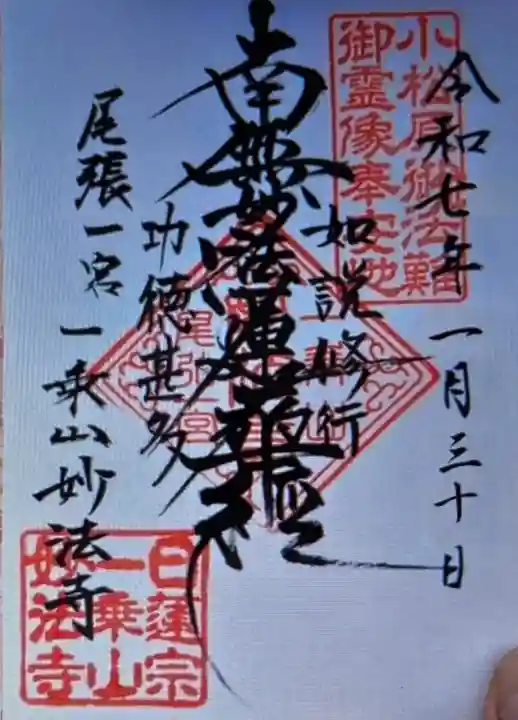 令和七年一月三十日
小松原御法難
御霊像奉安地
如説修行
南無妙法蓮華経
功徳甚多
尾張一宮 一乗山妙法寺
日蓮宗
一乗山
妙法寺